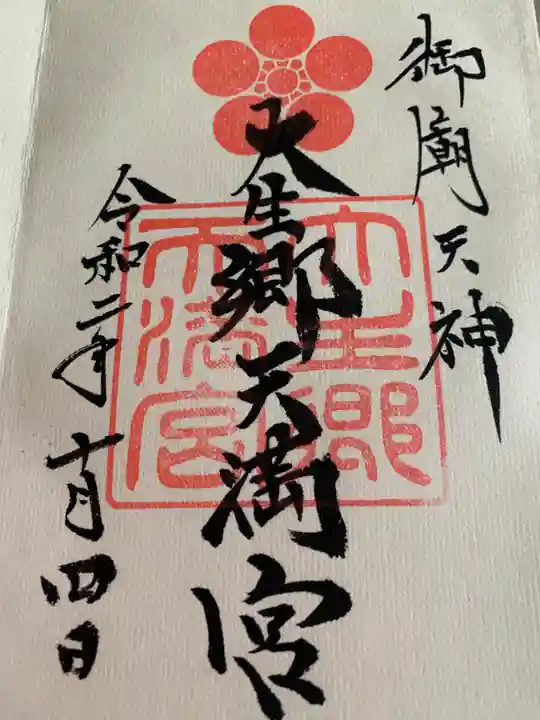 御廟天神
大生郷天満宮
大生郷
天満宮
令和二年十月四日